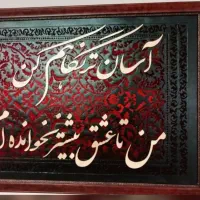 آسان تر نگاهم کن
من تا عشق بیشتر نخوانده ام